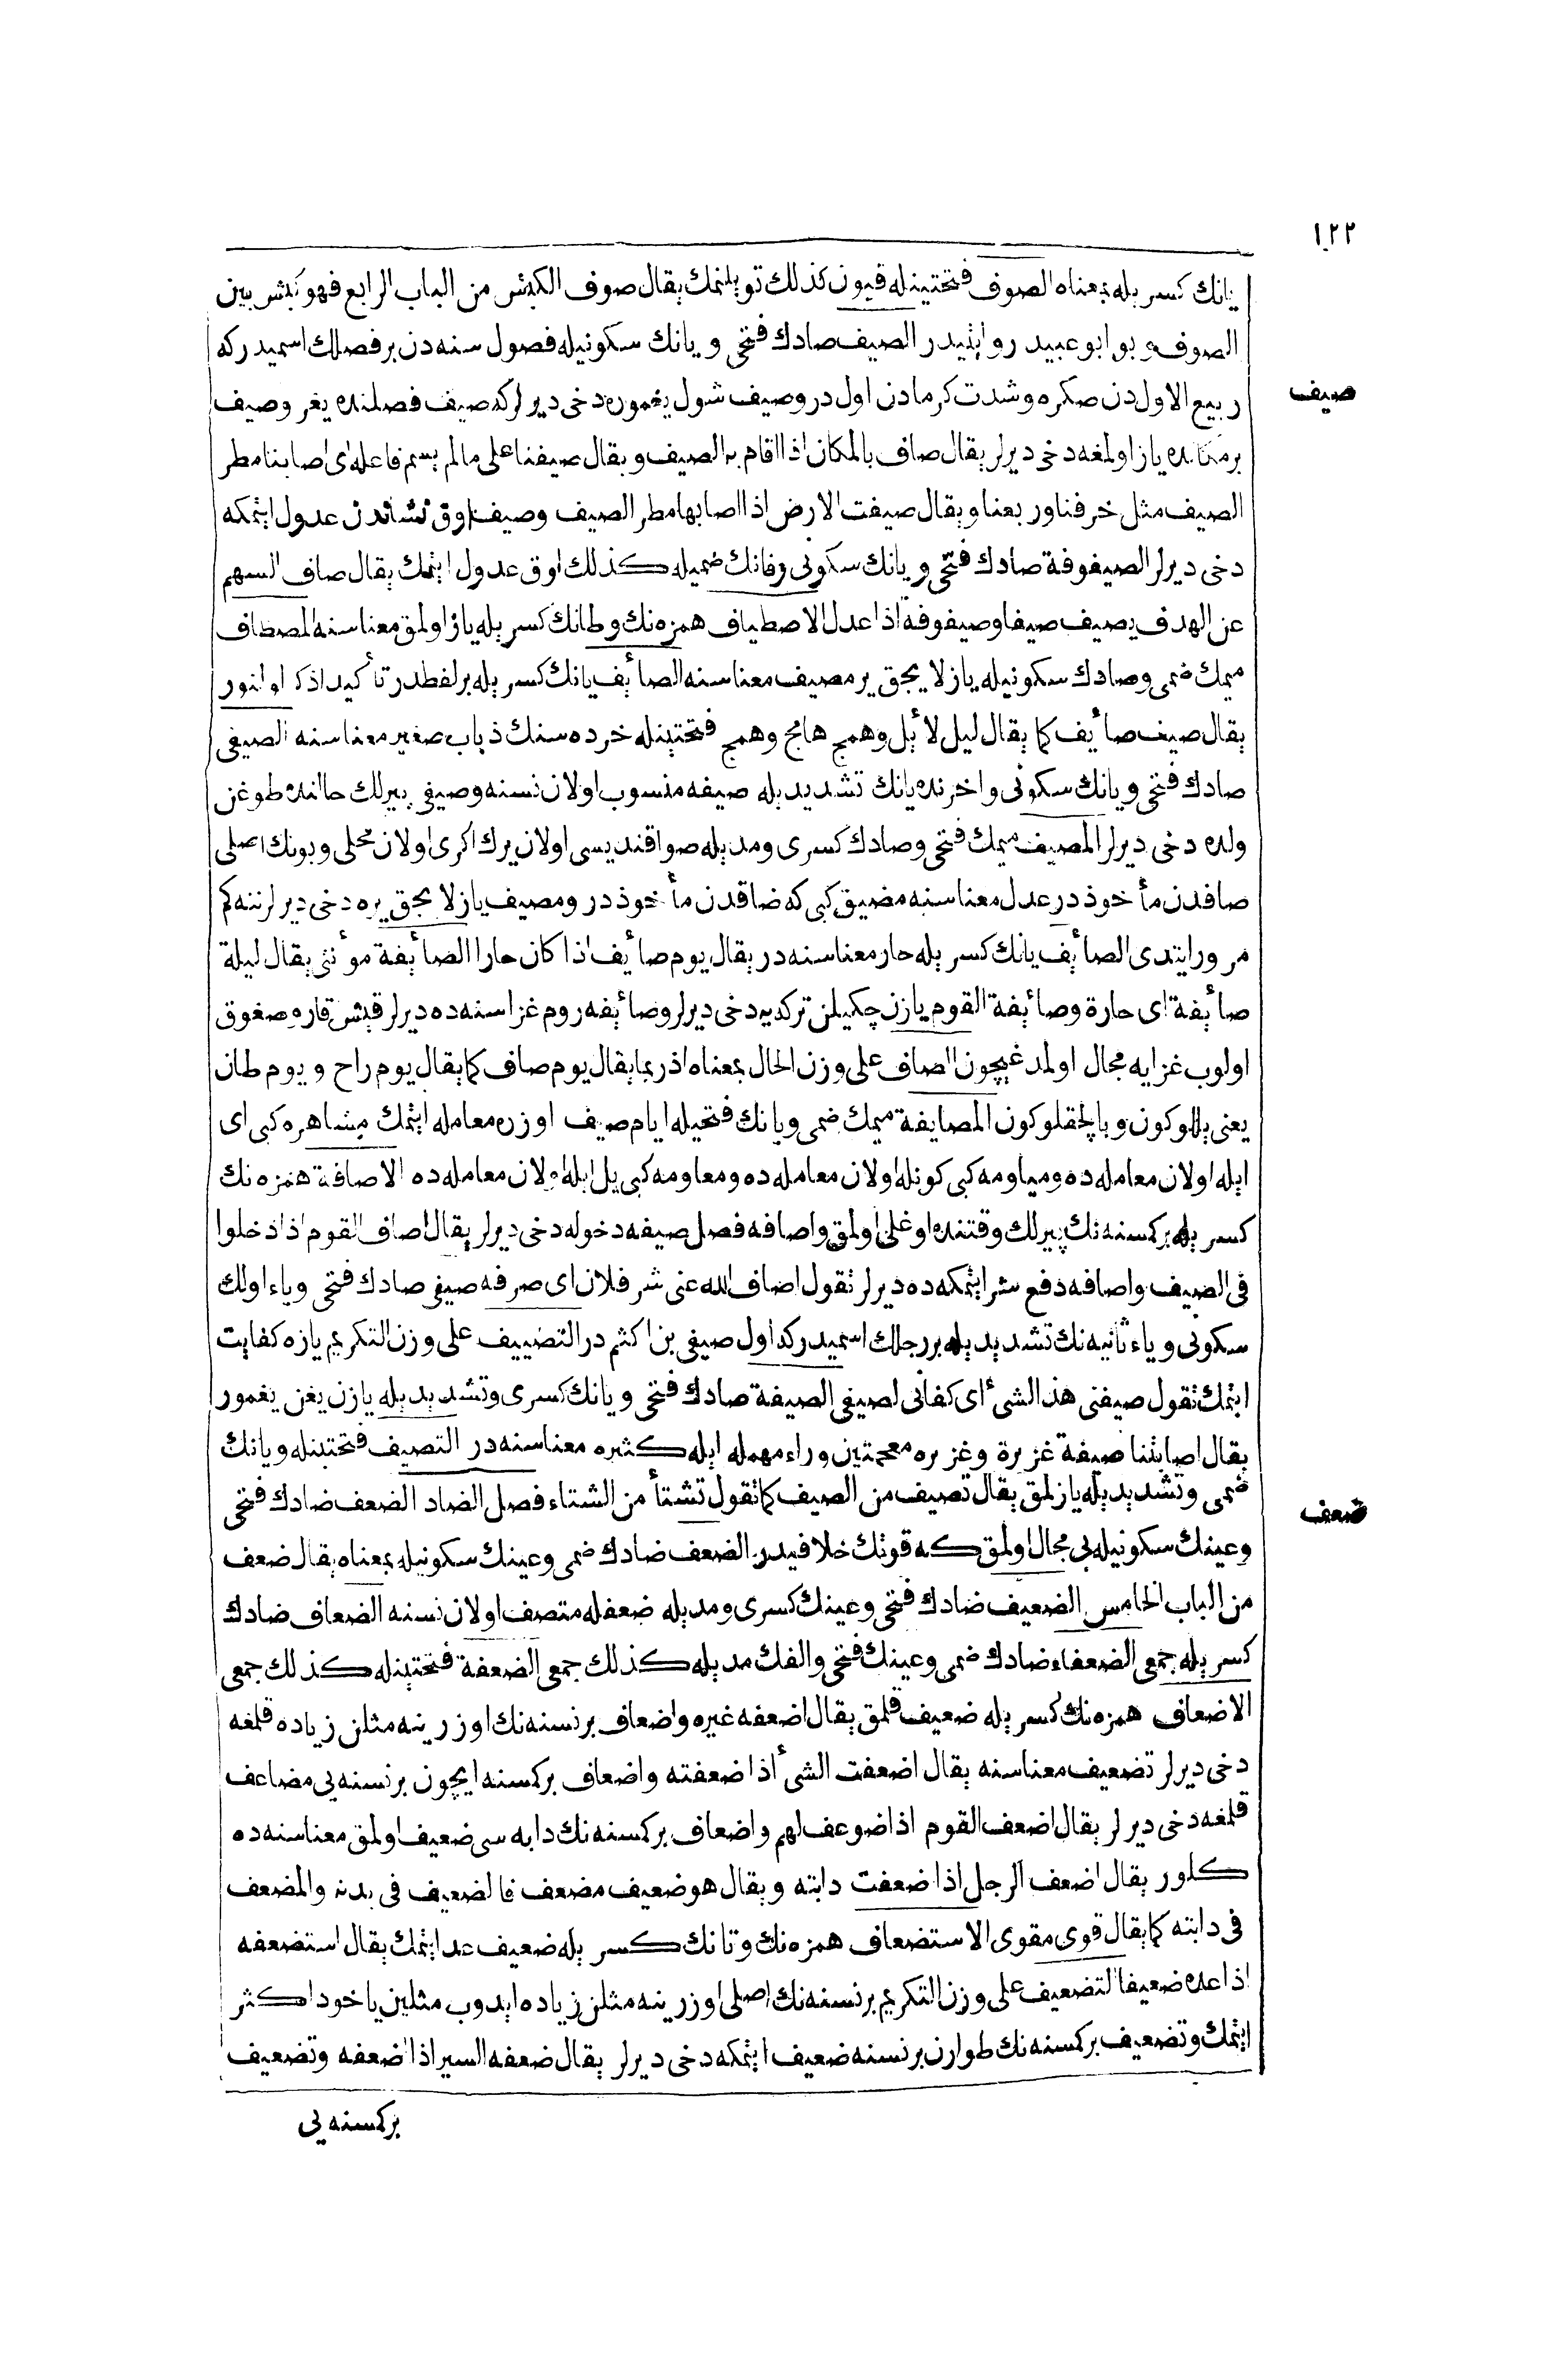 ١٢٢
یانك كسر یله بمعناه الصوف فتحتینله قیون كذلك تویلنمك یقال صوف الكبش من الباب الرابع فهو كبش بین
الصوف و بو ابو عبید روایتیدر الصیف صادك فتحی و یانك سكونیله فصول سنه دن بر فصلك اسمیدر كه
صیف
ربیع الاول دن صكره و شدت كرمادن اول در وصیف شول یغموره دخی دیرلر كه صیف فصلنده یغر وصیف
بر مكانده یاز اولمغه دخی دیرلر یقال صاف بالمكان اذا اقام به الصیف و یقال صیفنا علی مالم یسم فاعله ای اصابنا مطر
الصیف مثل خرفنا وربعنا و یقال صیفت الارض اذا اصابها مطر الصیف وصیف اوق نشاندن عدول ایتمكه
دخی دیرلر الصیفوفة صادك فتحی و یانك سكونی وفانك ضمیله كذلك اوق عدول ایتمك یقال صاف السهم
عن الهدف یصیف صیفا وصیفوفة اذا عدل الاصطیاف همزه نك و طانك كسر یله یاز اولمق معناسنه المصطاف
میمك ضمی وصادك سكونیله یازلایجق یر مصیف معناسنه الصائف یانك كسر یله بر لفظدر تأكیدا ذكر اولنور
یقال صیف صائف كما یقال لیل لائل وهمج هامج وهمج فتحتینله خرده سنك ذباب صغیر معناسنه الصیفی
صادك فتحی و یانك سكونی و اخرنده یانك تشدیدیله صیفه منسوب اولان نسنه وصیفی پیرلك حالنده طوغن
ولده دخی دیرلر المصیف میمك فتحی وصادك كسری ومدیله صو اقندیسی اولان یرك اكری اولان محلی و بونك اصلی
صافدن مأخوذ در عدل معناسنه مضیق كبی كه ضاقدن مأخوذ در ومصیف یازلایجق یره دخی دیرلر نته كم
مرور ایتدی الصائف یانك كسر یله حار معناسنه در یقال یوم صائف اذا كان حارا الصائفة مؤنثی یقال لیلة
صائفة ای حارة وصائفة القوم یازن چكیلن تركدیه دخی دیرلر وصائفه روم غزاسنه ده دیرلر قیشن قار و صغوق
اولوب غزایه مجال اولمدغیچون الصاف علی وزن الحال بمعناه اذ ربما یقال یوم صاف كما یقال یوم راح و یوم طان
یعنی یللو كون و بالچقلو كون المصایفة میمك ضمی و یانك فتحیله ایام صیف اوزره معامله ایتمك مشاهره كبی ای
ایله اولان معامله ده ومیاومه كبی كونله اولان معامله ده ومعاومه كبی یل ایله اولان معامله ده الاصافة همزه نك
كسر یله بر كمسنه نك پیرلك وقتنده اوغلی اولمق و اصافه فصل صیفه دخوله دخی دیرلر یقال اصاف القوم اذا دخلوا
فی الصیف و اصافه دفع شر ایتمكه ده دیرلر تقول اصاف الله عنی شر فلان ای صرفه صیفی صادك فتحی و یاء اولك
سكونی و یاء ثانیه نك تشدیدیله بر رجلك اسمیدر كه اول صیفی بن اكثم در التصییف علی وزن التكریم یازه كفایت
ایتمك تقول صیفنی هذا الشئ ای كفانی لصیفی الصیفة صادك فتحی و یانك كسری و تشدیدیله یازن یغن یغمور
یقال اصابتنا صیفة غزیرة و غزیره معجمتین و راء مهمله ایله كثیره معناسنه در التصیف فتحتینله و یانك
ضمی و تشدیدیله یازلمق یقال تصیف من الصیف كما تقول تشتأ من الشتاء فصل الضاد الضعف ضادك فتحی
ضعف
وعینك سكونیله بی مجال اولمق كه قوتك خلافیدر الضعف ضادك ضمی وعینك سكونیله بمعناه یقال ضعف
من الباب الخامس الضعیف ضادك فتحی وعینك كسری ومدیله ضعفله متصف اولان نسنه الضعاف ضادك
كسر یله جمعی الضعفاء ضادك ضمی وعینك فتحی والفك مدیله كذلك جمعی الضعفة فتحتینله كذلك جمعی
الاضعاف همزه نك كسر یله ضعیف قلمق یقال اضعفه غیره و اضعاف بر نسنه نك اوزرینه مثلن زیاده قلمغه
دخی دیرلر تضعیف معناسنه یقال اضعفت الشئ اذا ضعفته و اضعاف بر كمسنه ایچون بر نسنه یی مضاعف
قلمغه دخی دیرلر یقال اضعف القوم اذا ضوعف لهم و اضعاف بر كمسنه نك دابه سی ضعیف اولمق معناسنه ده
كلور یقال اضعف الرجل اذا ضعفت دابته و یقال هو ضعیف مضعف فالضعیف فی بدنه والمضعف
فی دابته كما یقال قوی مقوی الاستضعاف همزه نك و تانك كسر یله ضعیف عد ایتمك یقال استضعفه
اذا عده ضعیفا التضعیف علی وزن التكریم بر نسنه نك اصلی اوزرینه مثلن زیاده ایدوب مثلین یا خود اكثر
ایتمك و تضعیف بر كمسنه نك طوارن بر نسنه ضعیف ایتمكه دخی دیرلر یقال ضعفه السیر اذا اضعفه و تضعیف
بر كمسنه یی